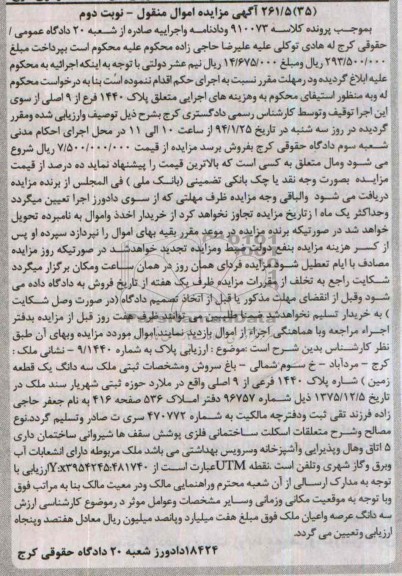 (۳۵) ۲۶۱/۵ آگهی مزایده اموال منقول - نوبت دوم
بموجب پرونده کلاسه ۹۱۰۰۷۳ ودادنامه واجراییه صادره از شعبه ۲۰ دادگاه عمومی /
حقوقی کرج له هادی توکلی علیه علیرضا حاجی زاده محکوم علیه محکوم است بپرداخت مبلغ
۲۹۳/۵۰۰/۰۰۰ ریال ومبلغ ۱۴/۶۷۵/۰۰۰ ریال نیم عشر دولتی با توجه به اینکه اجرائیه به محکوم
علیه ابلاغ گردیده ودر مهلت مقرر نسبت به اجرای حکم اقدام ننموده است بنا به درخواست محکوم
له وبه منظور استیفای محکوم به وهزینه های اجرایی متعلق پلاک ۱۴۴۰ فرع از ۹ اصلی از سوی
این اجرا توقیف وتوسط کارشناس رسمی دادگستری کرج بشرح ذیل توصیف وارزیابی شده ومقرر
گردیده در روز سه شنبه در تاریخ ۹۴/۱/۲۵ از ساعت ۱۰ الی ۱۱ در محل اجرای احکام مدنی
شعبه سوم دادگاه حقوقی کرج بفروش برسد مزایده از قیمت ۷/۵۰۰/۰۰۰/۰۰۰ ریال شروع
می شود ومال متعلق به کسی است که بالاترین قیمت را پیشنهاد نماید ده درصد از قیمت
مزایده بصورت وجه نقد یا چک بانکی تضمینی (بانک ملی ) فی المجلس از برنده مزایده
دریافت می شود والباقی وجه مزایده ظرف مهلتی که از سوی دادورز اجرا تعیین میگردد
وحداکثر یک ماه ا زتاریخ مزایده تجاوز نخواهد کرد از خریدار اخذ واموال به نامبرده تحویل
خواهد شد در صورتیکه برنده مزایده در موعد مقرر بقیه بهای اموال را نپردازد سپرده او پس
از کسر هزینه مزایده بنفع دولت ضبط ومزایده تجدید خواهد شد در صورتیکه روز مزایده
مصادف با ایام تعطیل شود مزایده فردای همان روز در همان ساعت ومکان برگزار میگردد
شکایت راجع به تخلف از مقررات مزایده ظرف یک هفته از تاریخ فروش به دادگاه داده می
شود وقبل از انقضای مهلت مذکور یا قبل از اتخاذ تصمیم دادگاه (در صورت وصل شکایت
) به خریدار تسلیم نخواهد شد ضمنا طلبین می توانند ظرف هفت روز قبل از مزایده بدفتر
اجراء مراجعه وبا هماهنگی اجراء از اموال بازدید نمایند اموال موردد مزایده وبهای آن طبق
نظر کارشناس بدین شرح است :موضوع : ارزیابی پلاک به شماره ۹/۱۴۴۰ - نشانی ملک :
کرج - مردآباد - خ سوم شمالی - باغ سروش ومشخصات ثبتی ملک سه دانگ یک قطعه
زمین ) شاره پلاک ۱۴۴۰ فرعی از ۹ اصلی واقع در ملارد حوزه ثبتی شهریار سند ملک در
تاریخ ۱۳۷۵/۱۲/۵ ذیل شماره ۹۶۷۵۷ دفتر املاک ۵۳۶ صفحه ۴۱۶ به نام جعفر حاجی
زاده فرزند تقی ثبت ودفترچه مالکیت به شماره ۴۷۰۷۷۲ سری ت صادر وتسلیم گردد.نوع
مصالح وشرح متعلقات اسکلت ساختمانی فلزی پوشش سقف ها شیروانی ساختمان داری
۵ اتاق وهال وپذیرایی وآشپزخانه وسرویس بهداشتی می باشد ملک مربوطه دارای انشعابات آب
وبرق وگاز شهری وتلفن است .نقطه UTM عبارت است از Y:x۳۹۵۴۲۴۵:۴۸۱۷۴۰ ارزیابی با
توجه به مدارک ارسالی از آن شعبه محترم وراهنمایی مالک ودر معیت مالک بنا به مراتب فوق
وبا توجه به موقعیت مکانی وزمانی وسایر مشخصات وعوامل موثر د رموضوع کارشناسی ارزش
سه دانگ عرصه واعیان ملک فوق مبلغ هفت میلیارد وپانصد میلیون ریال معادل هفتصد وپنجاه
ارزیابی وتعیین می گردد.
۱۸۴۲۴دادورز شعبه ۲۰ دادگاه حقوقی کرج